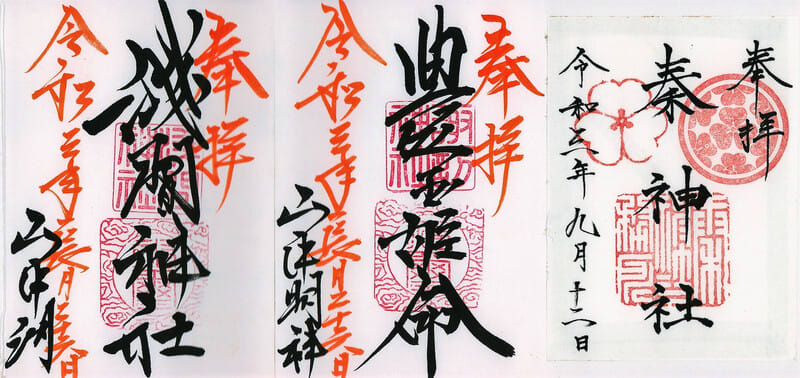 奉拝
浅間神社
令和三年長月二十六日
山中湖
奉拝
豐玉姫命
令和三年長月二十六日
山中明神
奉拝
秦神社
令和三年九月十二日